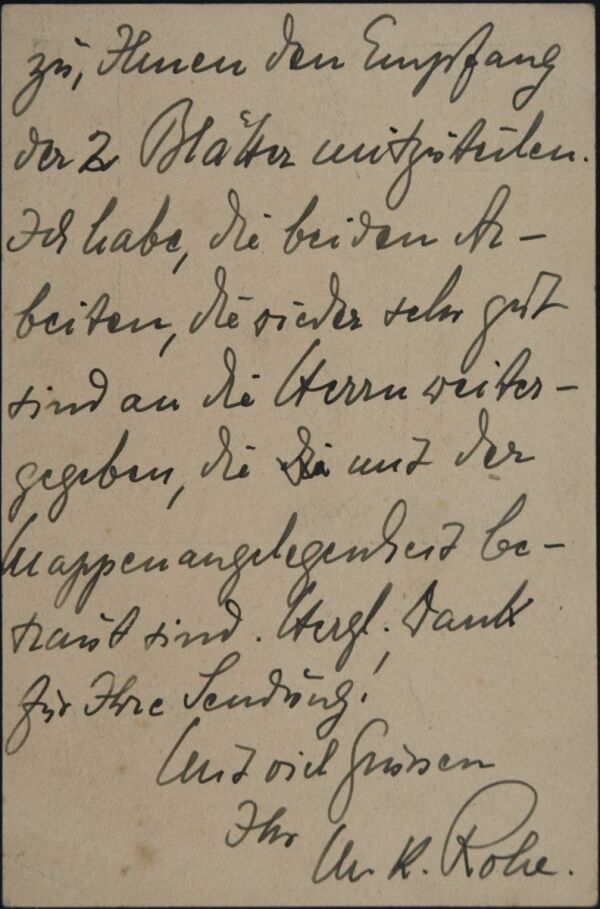 zu, Ihnen den Empfang
der 2 Blätter mitzuteilen.
Ich habe, die beiden Ar-
beiten, die wieder sehr gut
sind an die Herrn weiter-
gegeben, die mit der
Mappenangelegenheit be-
traut sind. Herzl. Dank
für Ihre Sendung!
Mit viel Grüssen
Ihr
M. K. Rohe.